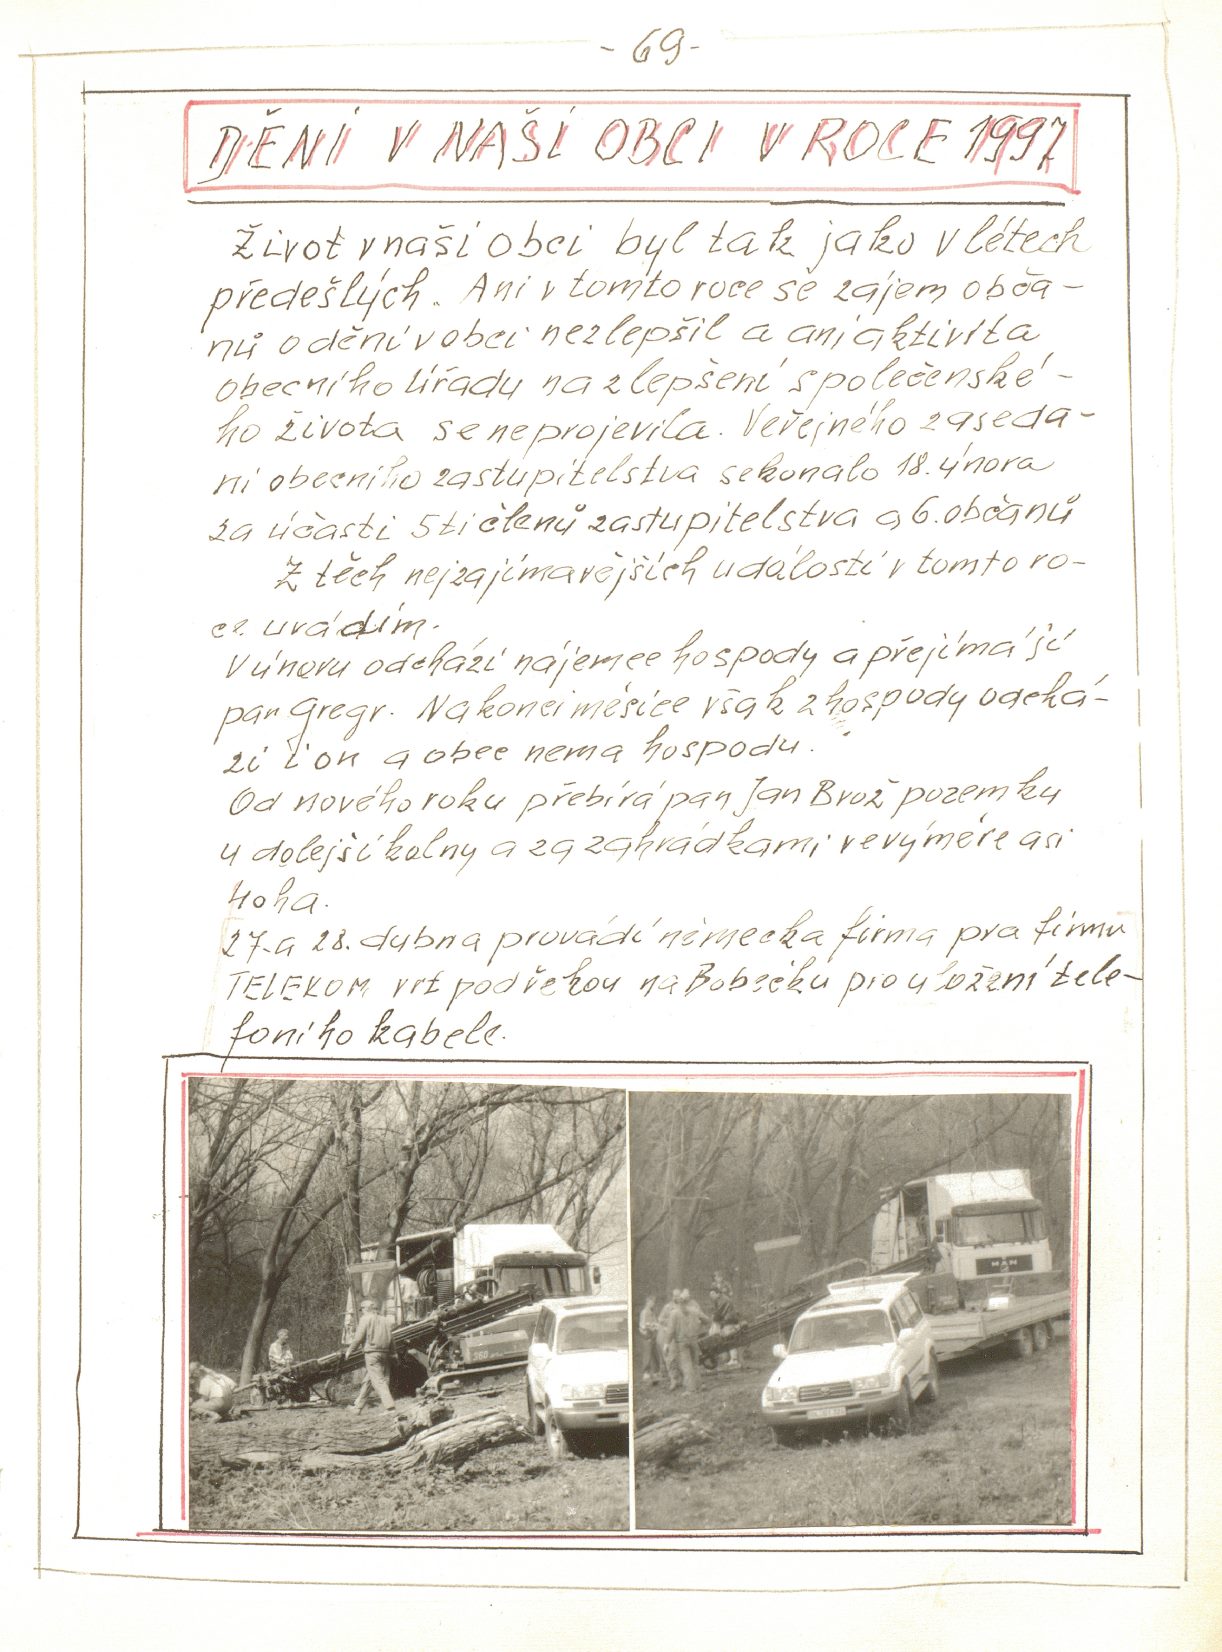 - 69 -
DĚNÍ V NAŠÍ OBCI V ROCE 1997
Život v naší obci byl tak jako v létech
předešlých. Ani v tomto roce se zájem obča-
nů o dění v obci nezlepšil a ani aktivita
obecního úřadu na zlepšení společenské-
ho života se neprojevila. Veřejného zasedá-
ní obecního zastupitelstva se konalo 18. února
za účasti 5ti členů zastupitelstva a 6. občanů
Z těch nejzajímavějších událostí v tomto ro-
ce uvádím.
V únoru odchází nájemce hospody a přejímá jí
pan Gregr. Na konci měsíce však z hospody odchá-
zí i on a obec nemá hospodu.
Od nového roku přebírá pan Jan Brož pozemky
u dolejší kolny a za zahrádkami ve výměře asi
40 ha.
27. a 28. dubna provádí německá firma pra firmu
TELEKOM vrt pod řekou na Bobečku pro uložení tele-
foního kabele.
MAN
260